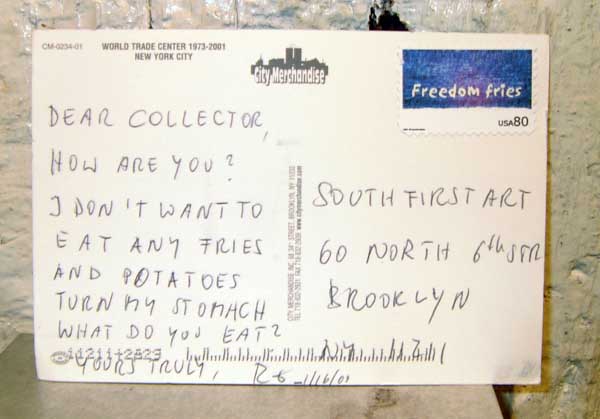 CM-0234-01
WORLD TRADE CENTER 1973-2001
NEW YORK CITY
City Merchandise
Freedom fries
USA80
DEAR COLLECTOR,
HOW ARE YOU?
I DON'T WANT TO
EAT ANY FRIES
AND POTATOES
TURN MY STOMACH
WHAT DO YOU EAT?
YOURS TRULY,
SOUTH FIRST ART
60 NORTH 6th STR
BROOKLYN
NY 11211
CITY MERCHANDISE INC. 68 34th STREET, BROOKLYN, NY 11232
www.citymerchandise.com